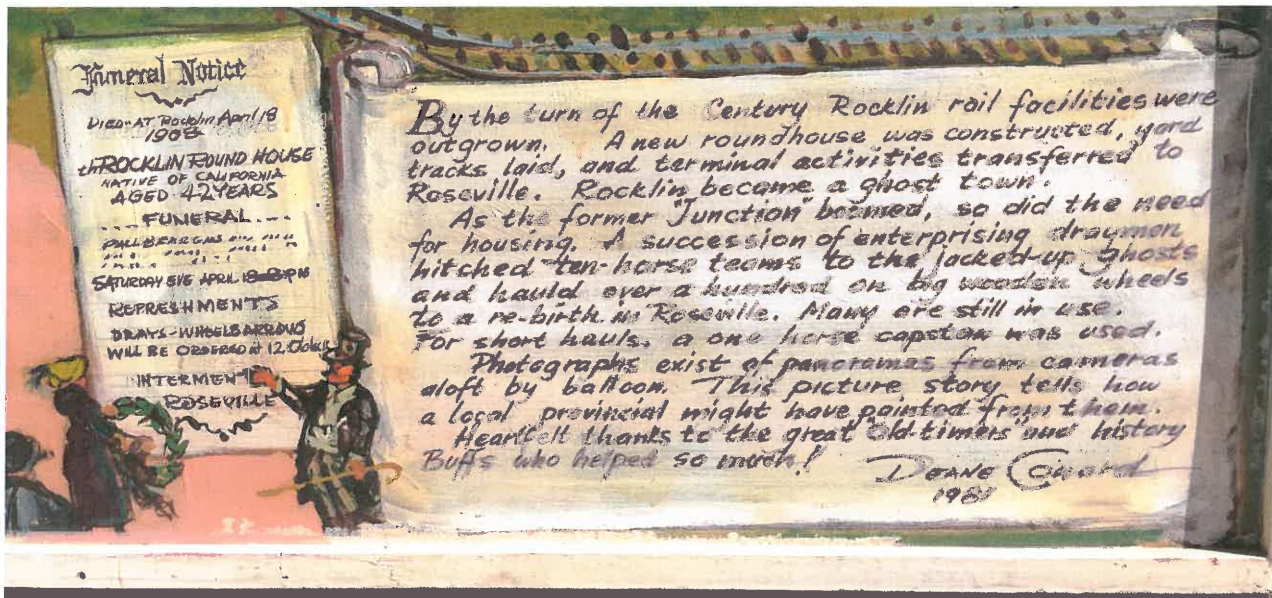 Funeral Notice
DIED-AT Rocklin April 18
1908
thROCKLIN ROUND HOUSE
NATIVE OF CALIFORNIA
AGED 42 YEARS
....FUNERAL....
PALLBEARERS
SATURDAY EVE APRIL 18 8 PM
REFRESHMENTS
DRAYS-WHEELBARROWS
WILL BE ORDERED at 12 Oclock
INTERMENT
ROSEVILLE
By the turn of the Century Rocklin rail facilities were
outgrown. A new roundhouse was constructed, yard
tracks laid, and terminal activities transferred to
Roseville. Rocklin became a ghost town.
As the former "Junction" boomed, so did the need
for housing. A succession of enterprising draymen
hitched ten-horse teams to the jacked-up ghosts
and hauld over a hundred on big wooden wheels
to a re-birth in Roseville. Many are still in use.
For short hauls, a one horse capstan was used.
Photographs exist of panoramas from cameras
aloft by balloon. This picture story tells how
a local provincial might have painted from them.
Heartfelt thanks to the great "Old-timers" and history
Buffs who helped so much!
DEANE
198